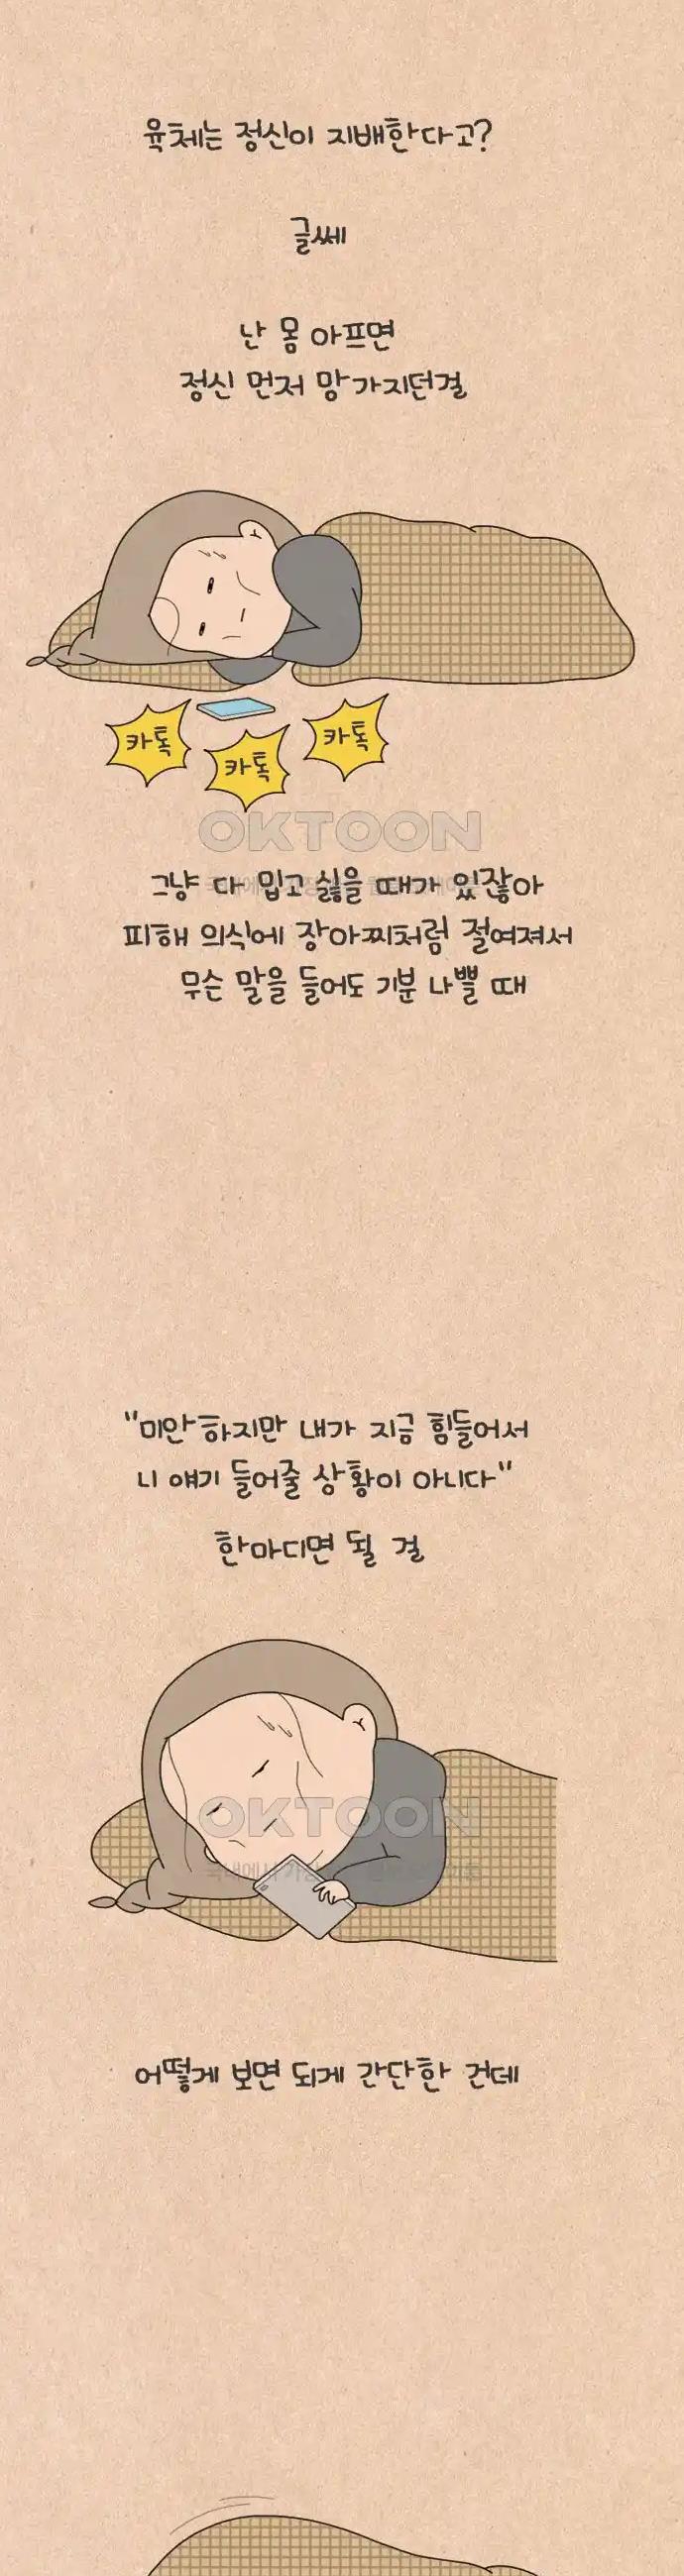 육체는 정신이 지배한다고?
글쎄
난 몸 아프면
정신 먼저 망가지던걸
카톡
카톡
카톡
OKTOON
그냥 다 밉고 싫을 때가 있잖아
피해 의식에 장아찌처럼 절여져서
무슨 말을 들어도 기분 나쁠 때
"미안하지만 내가 지금 힘들어서
니 얘기 들어줄 상황이 아니다"
한마디면 될 걸
OKTOON
국내에서
어떻게 보면 되게 간단한 건데